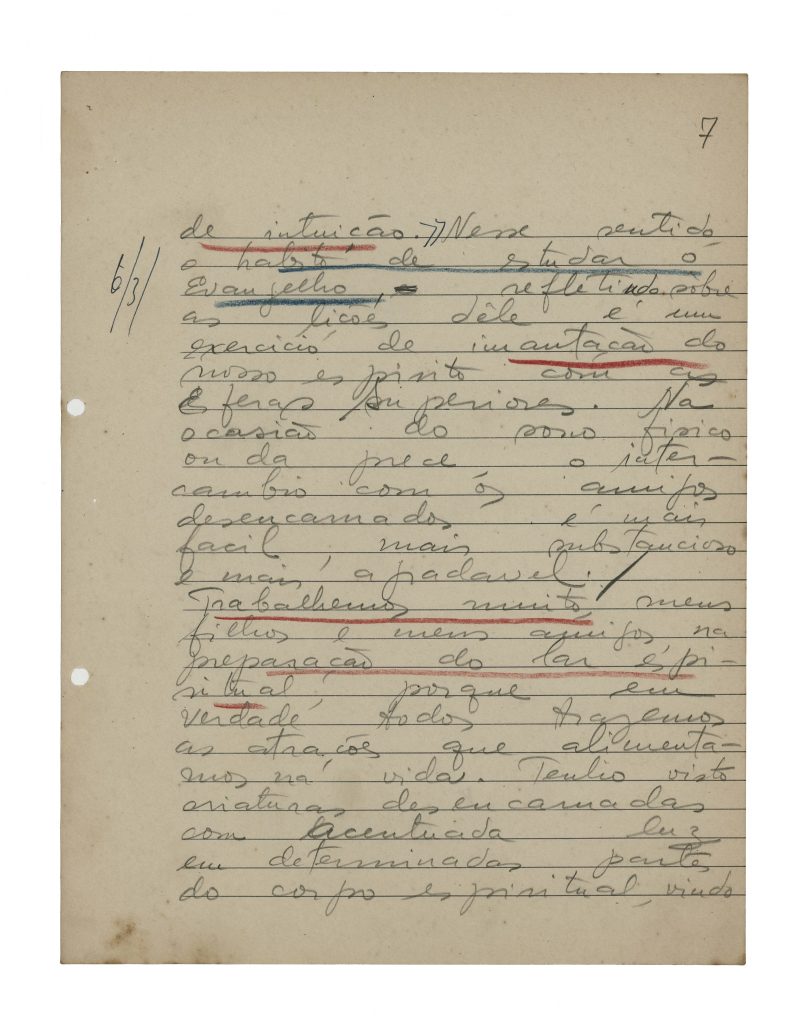 7
de intuição. » Nesse sentido
o habito de estudar o
6/3/
Evangelho, refletindo sobre
as licões dêle é um
exercicio de imantacão do
nosso espirito com as
Esferas Superiores. Na
ocasião do sono fisico
ou da prece o inter-
cambio com os amigos
desencarnados é mais
facil, mais substancioso
e mais agradavel.
Trabalhemos muito, meus
filhos e meus amigos na
preparação do lar espi-
ritual, porque em
verdade todos trazemos
as atrações que alimenta-
mos na vida. Tenho visto
criaturas desencarnadas
com acentuada luz
em determinadas partes
do corpo espiritual, vindo